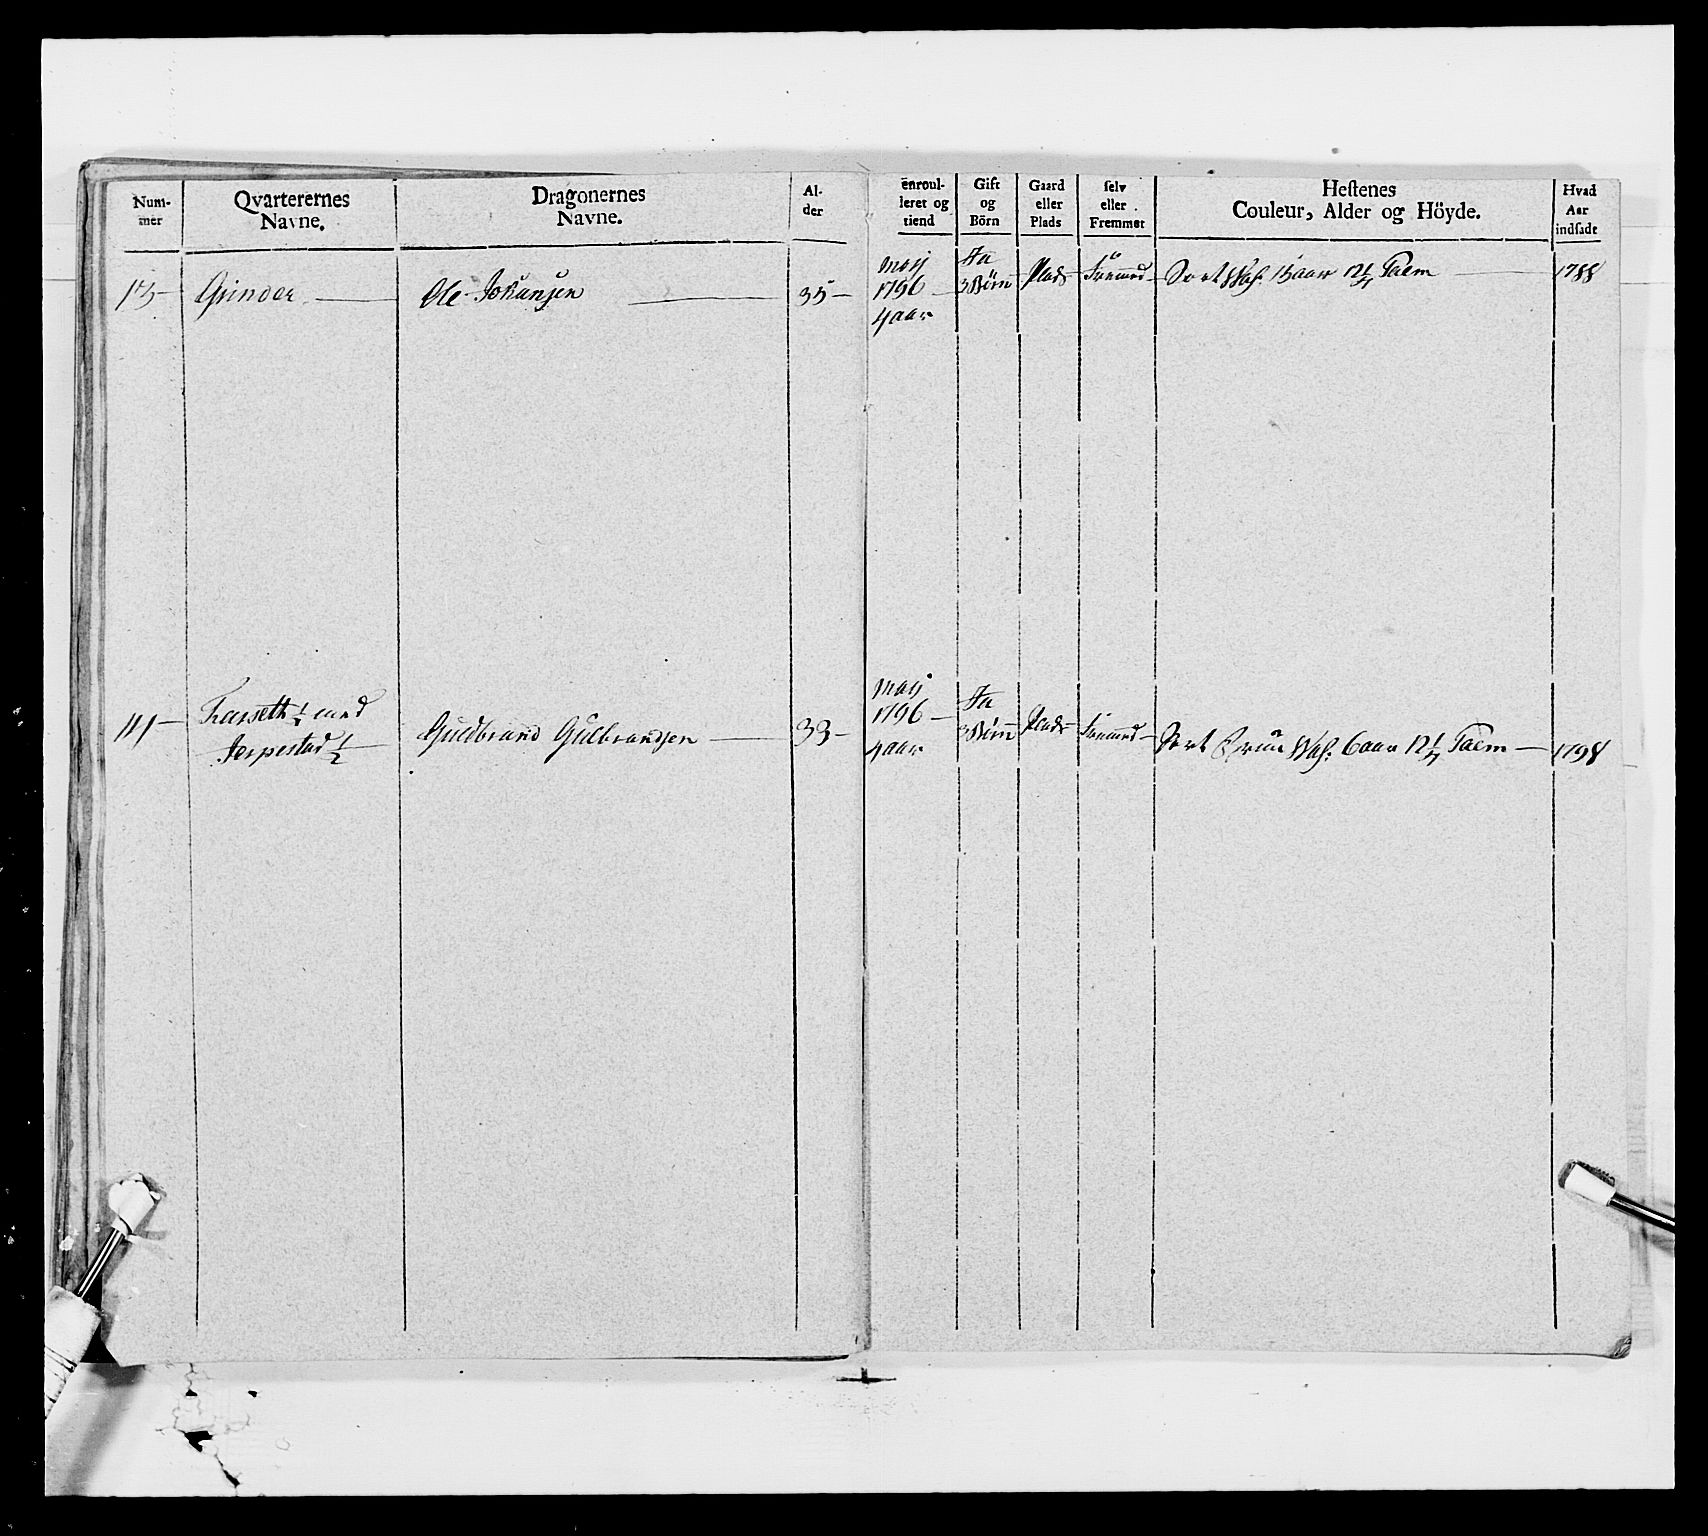 Num-
mer
Qvarterernes
Navne.
Dragonernes
Navne.
Al-
der
enroul-
leret og
tiend
Gift
og
Börn
Gaard
eller
Plads
selv
eller
Fremmet
Hestenes
Couleur, Alder og Höyde.
Hvad
Aar
indsadt
Grinder
Ole Johansen
35
Maj
1796
4 aar
Ja
3 Børn
Plads
Fremmed
Sort Wal: 15 aar 12 1/4 Palm
1788
med
Jerpestad 1/2
Guldbrand Gulbrandsen
33
Maj
1796
4 aar
Ja
3 Børn
Plads
Fremmed
Sort Brun Wal: 6 aar 12 1/4 Palm
1798